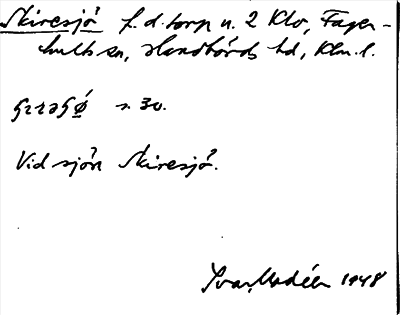 Skiresjö f. d. torp u. 2 Klo, Fager-
hults sn, Handbörds hd, Klm. l.
s. 30.
Vid sjön Skiresjö.
Ivar Modéer 1948